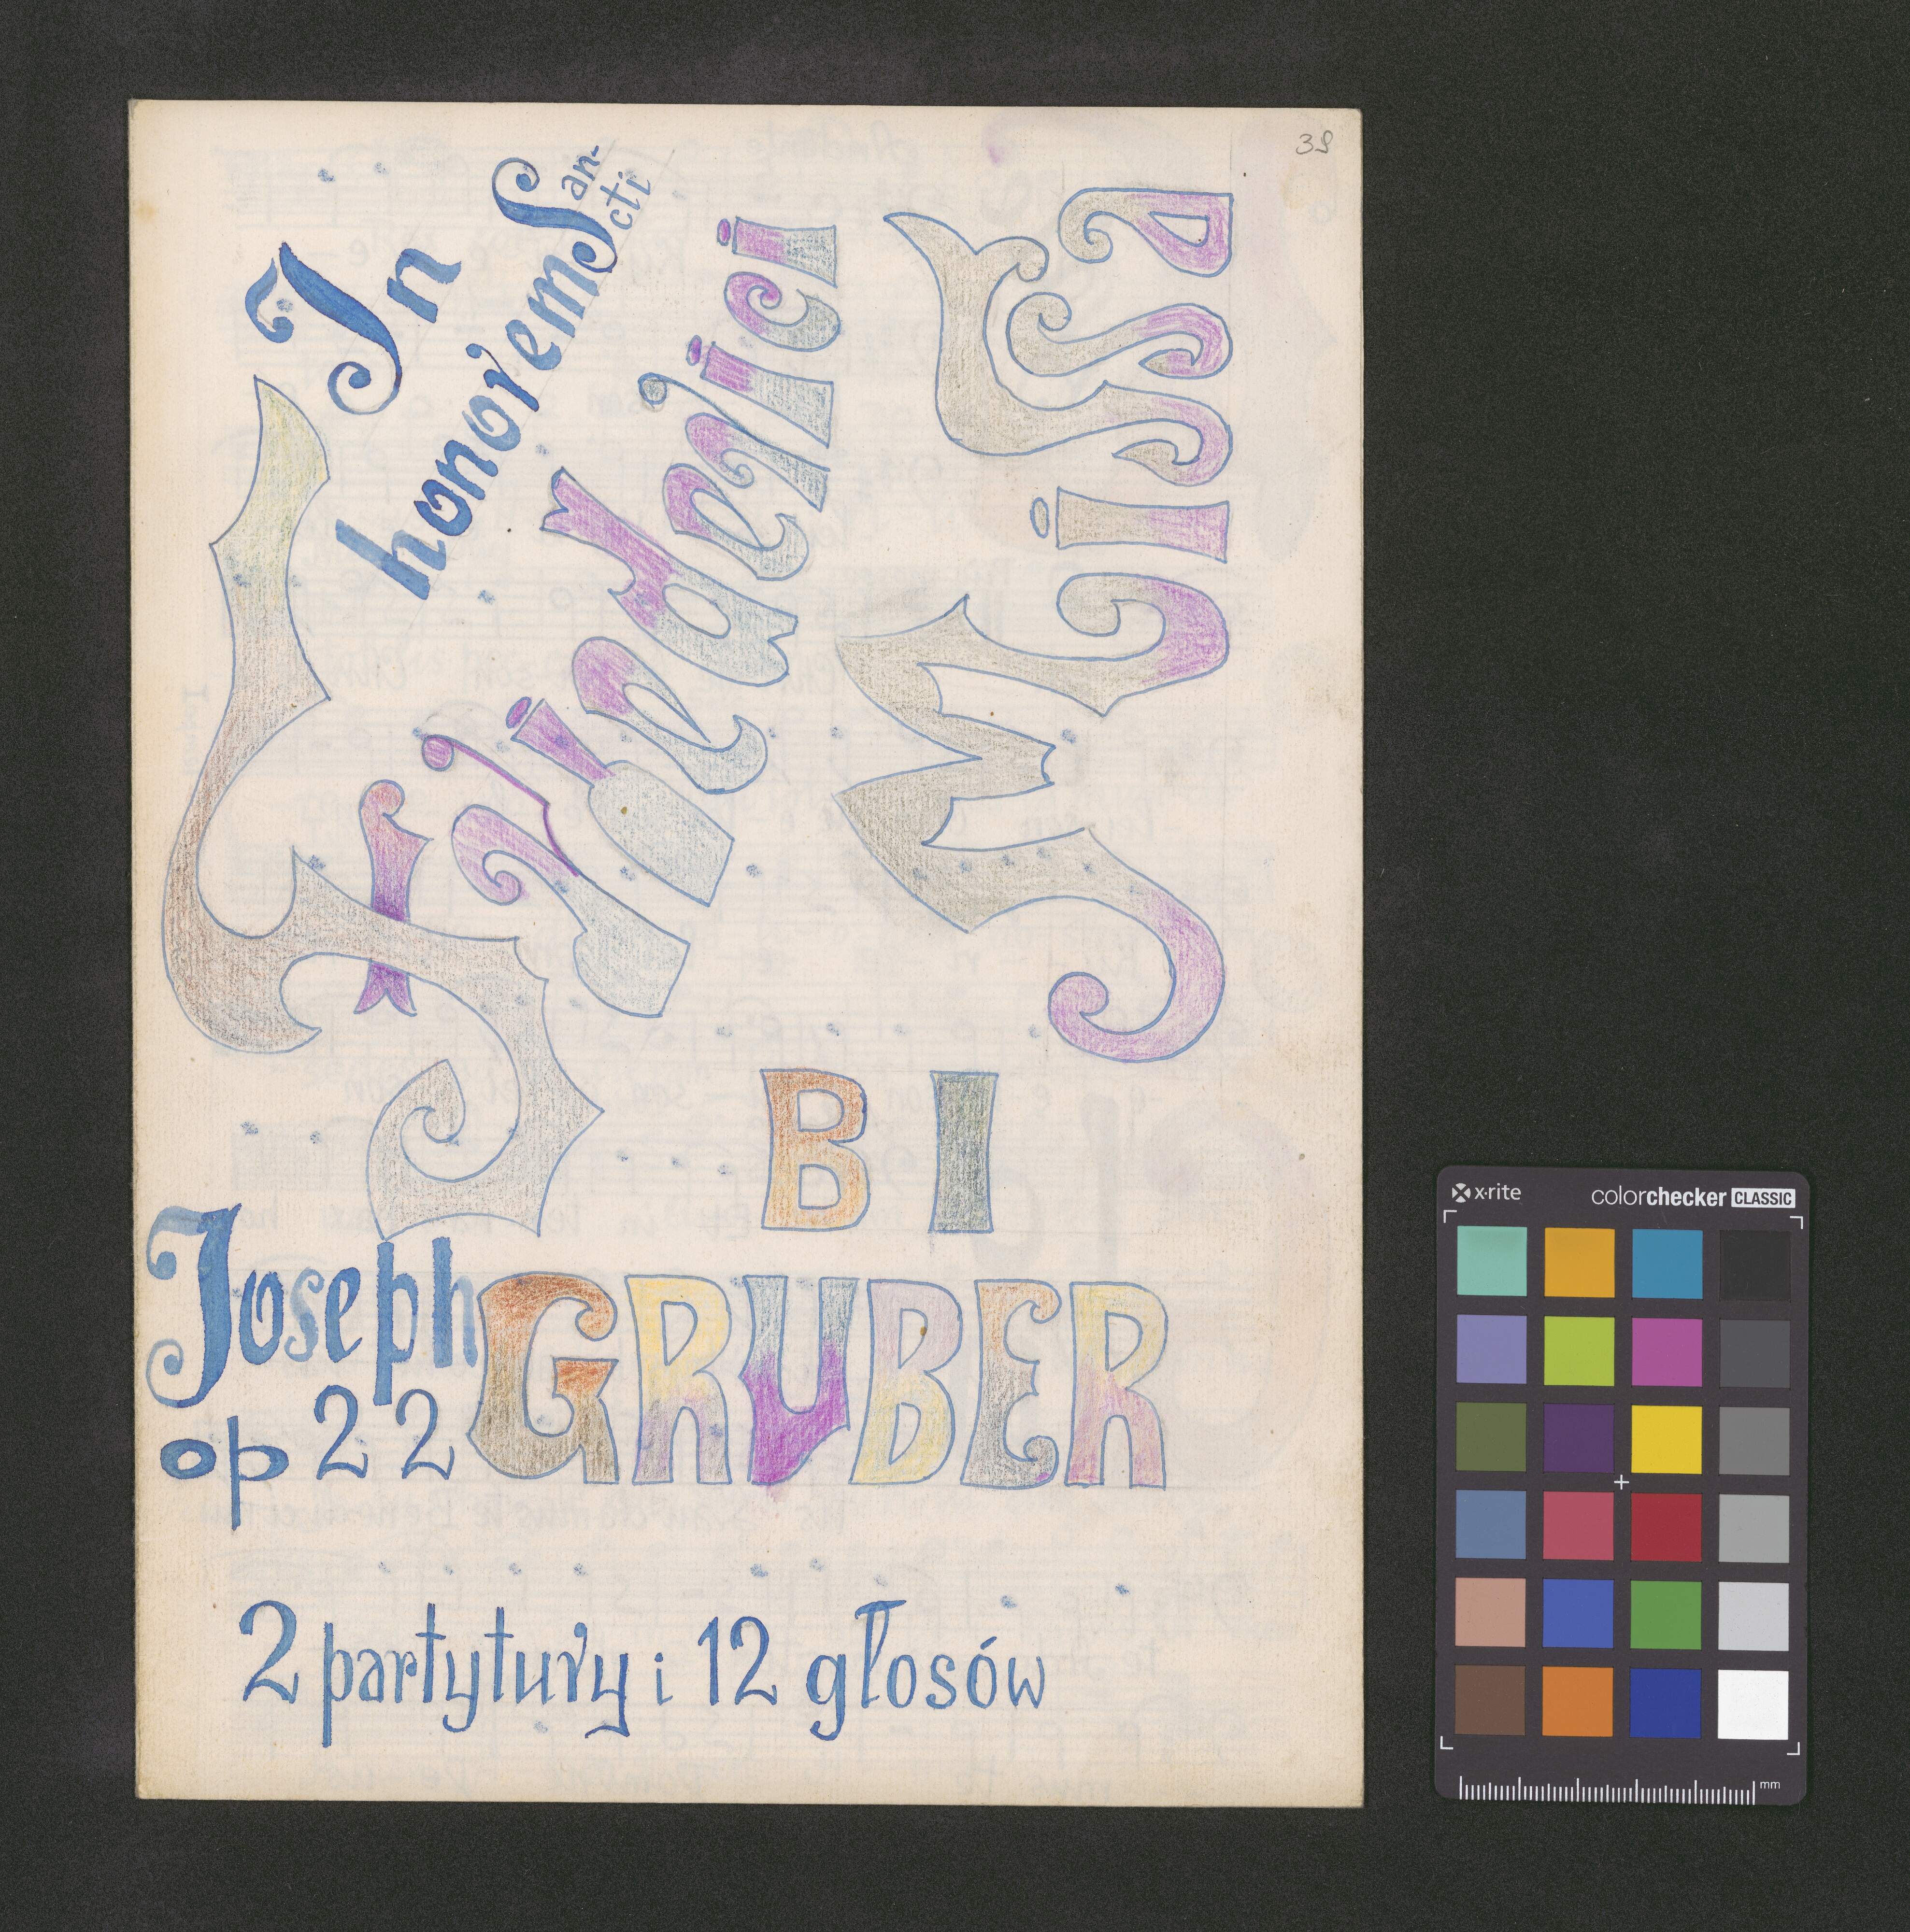 38
In
honorem San-
cti
Friederici
Missa
BI
Joseph GRUBER
op 22
2 partytury i 12 głosów
x·rite
colorchecker CLASSIC
mm